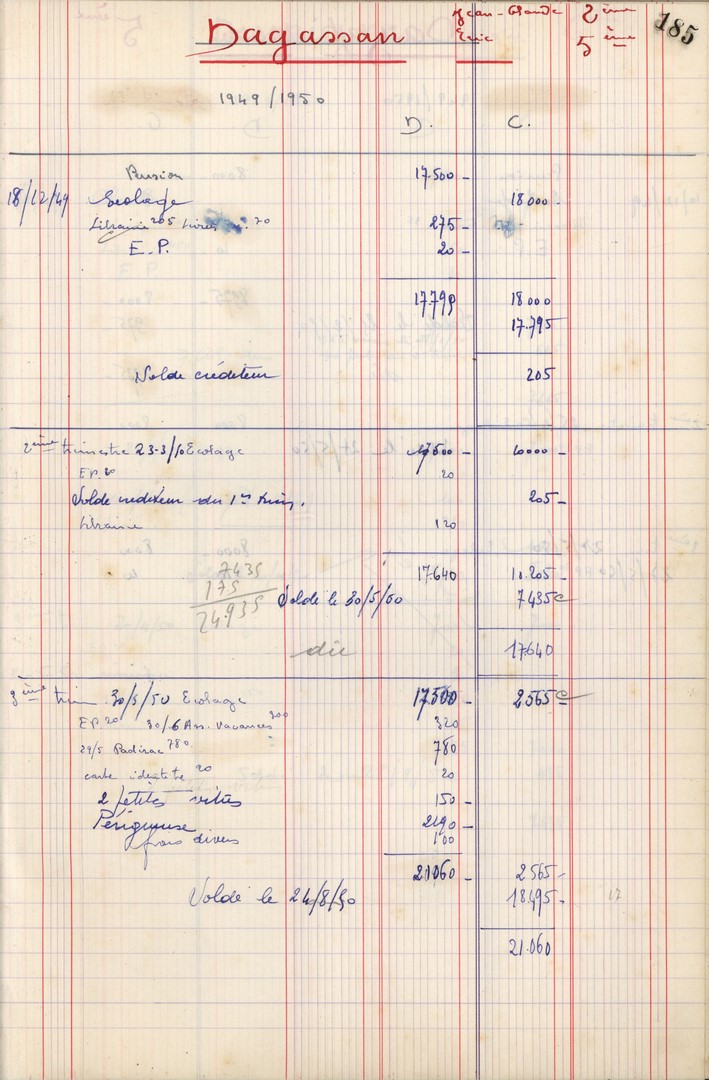 Dagassan Jean-Claude 2ème 185
Eric 5ème
1949/1950
D. C.
Pension 17.500 -
18/12/49 Ecolage 18000 -
Librairie 205 Livres 70 275 -
E.P. 20 -
17.795 18000
17.795
Solde créditeur 205
2ème trimestre 23-3/50 Ecolage 17500 - 10000 -
EP. 20 20
Solde créditeur du 1er trim. 205 -
Librairie 120
7435 17.640 10.205 -
175
24.935 Soldé le 30/5/50 7435 c
dû 17.640
3ème trim. 30/5/50 Ecolage 17.500 - 2565 c
EP. 20 30/6 Ass. Vacances 300 320
29/5 Padirac 780 780
carte identité 20 20
2 petites vitres 150 -
Périgueuse 2190 -
frais divers 100
21.060 - 2565 -
Soldé le 24/8/50 18.495 - 17
21.060